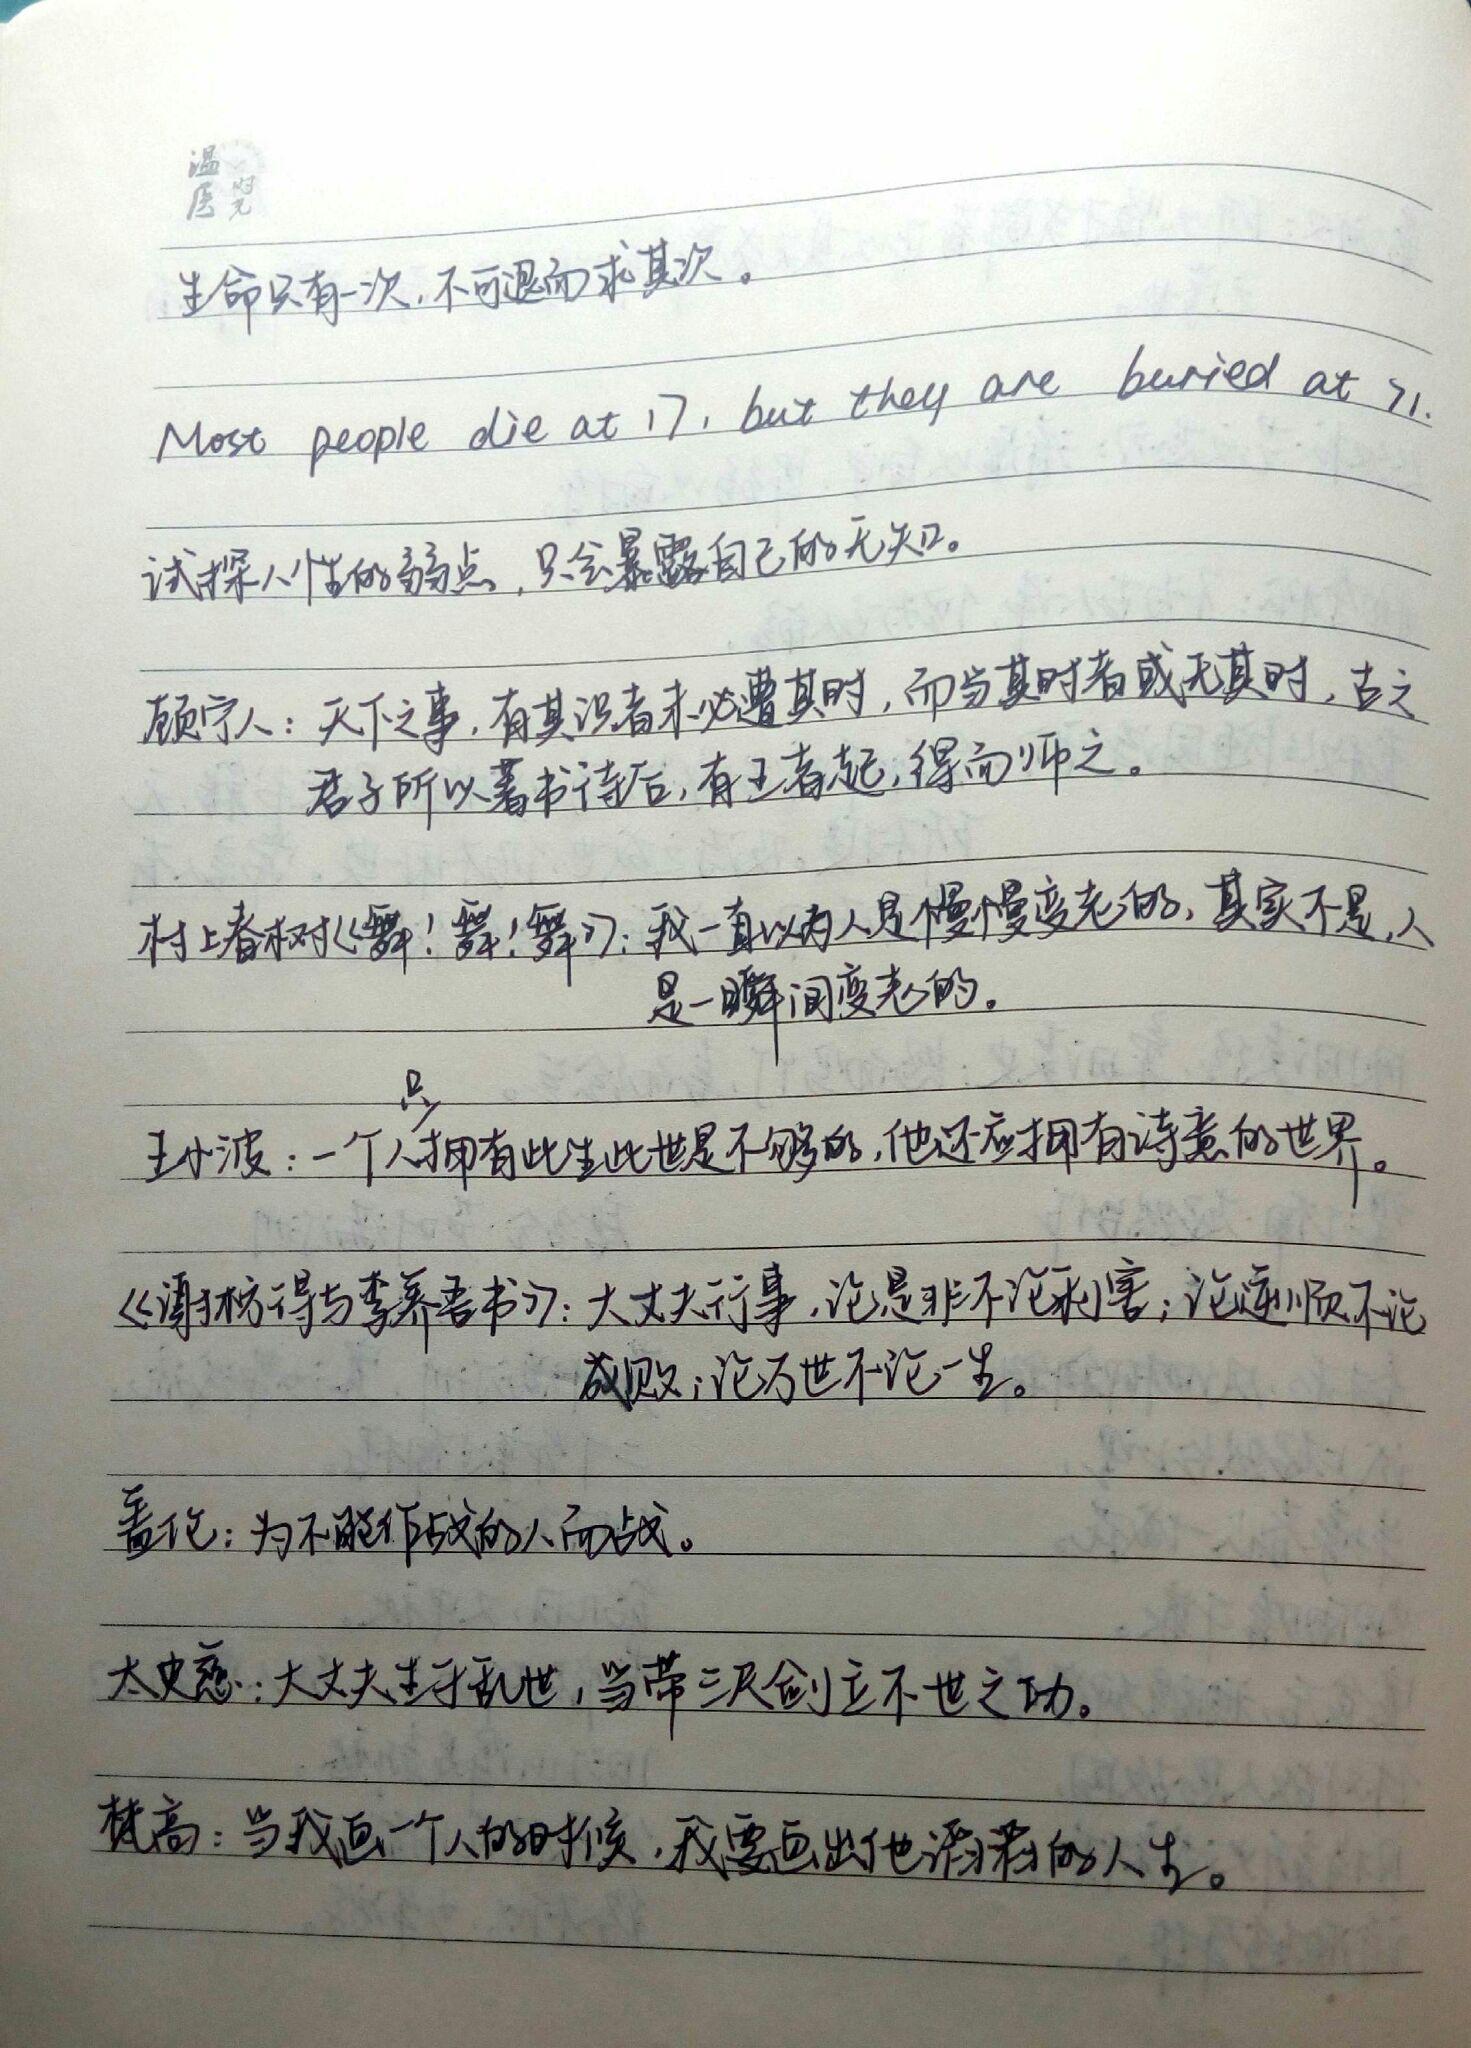 温医
时光
生命只有一次,不可退而求其次。
Most people die at 17, but they are buried at 71.
试探人性的弱点,只会暴露自己的无知。
顾宁人:天下之事,有其识者未必遭其时,而当其时者或无其时,古之
君子所以著书待后,有王者起,得而师之。
村上春树《舞!舞!舞》:我一直以为人是慢慢变老的,其实不是,人
是一瞬间变老的。
只
王小波:一个人拥有此生此世是不够的,他还应拥有诗意的世界。
《谢枋得与李养吾书》:大丈夫行事,论是非不论利害;论逆顺不论
成败;论万世不论一生。
盖伦:为不能作战的人而战。
太史慈:大丈夫生于乱世,当带三尺剑立不世之功。
梵高:当我画一个人的时候,我要画出他滔滔的人生。